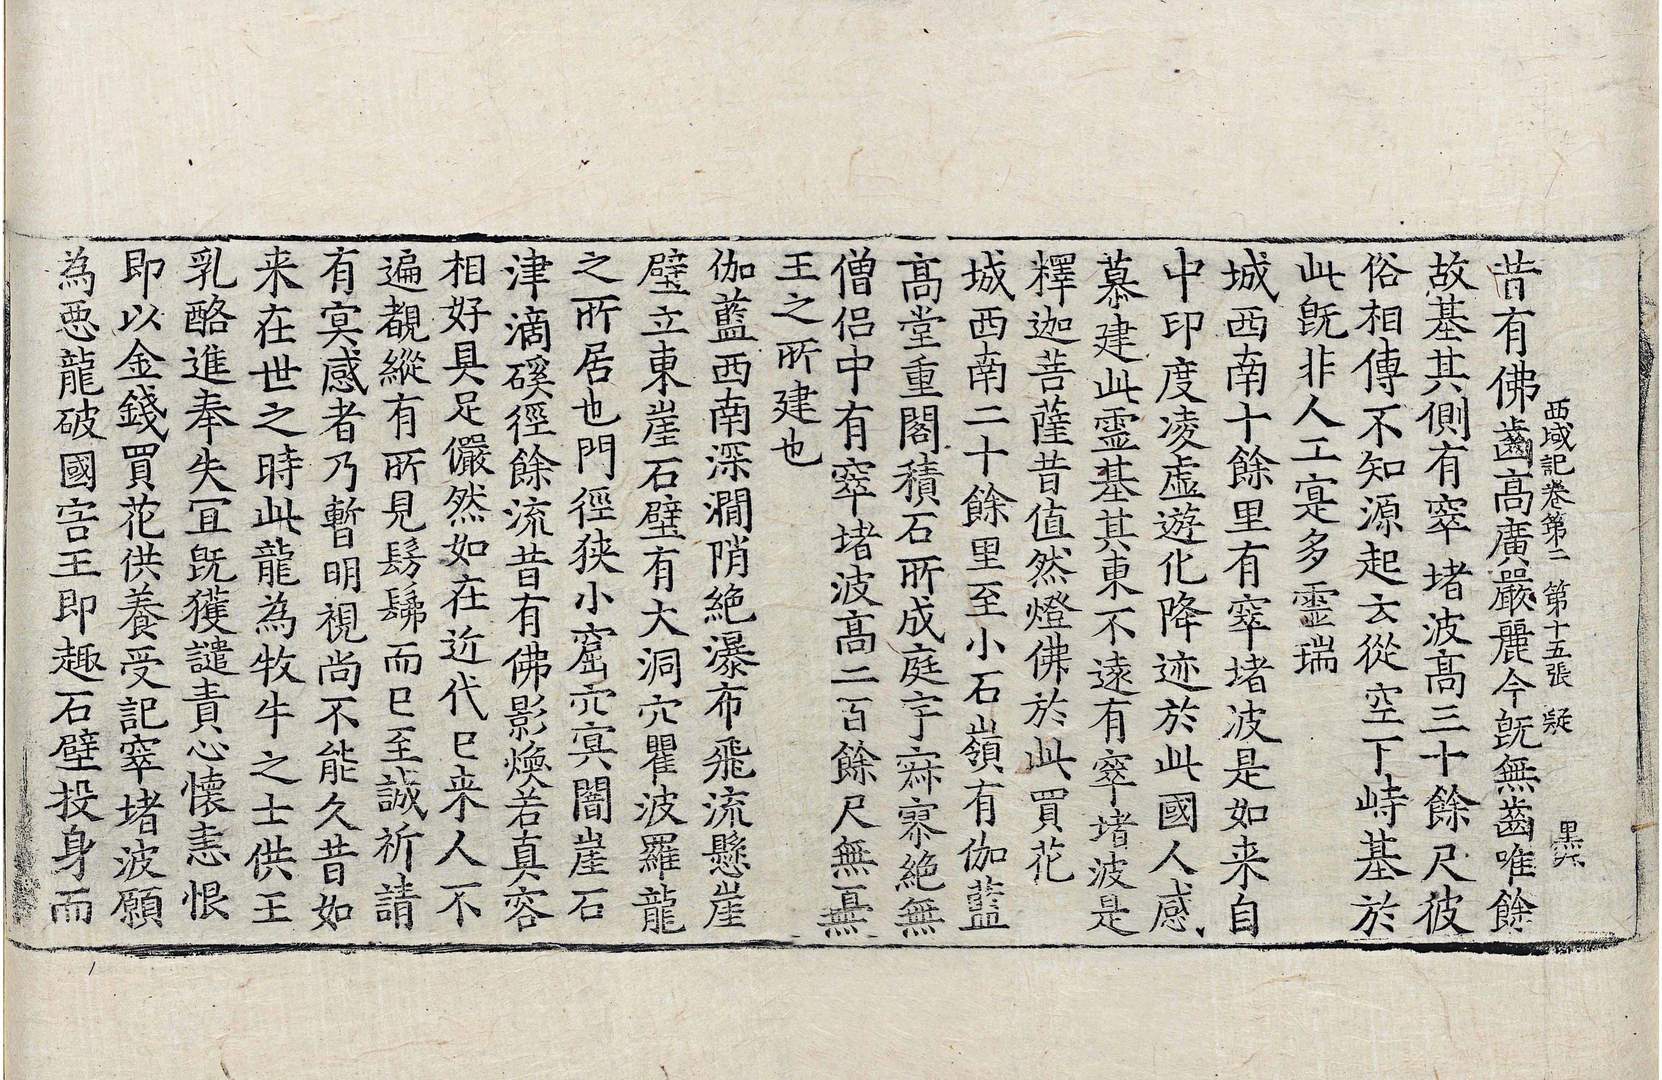 西域記卷第二 第十五張 疑
昔有佛齒高廣嚴麗今旣無齒唯餘
故基其側有窣堵波高三十餘尺彼
俗相傳不知源起云從空下峙基於
此旣非人工寔多靈瑞
城西南十餘里有窣堵波是如来自
中印度凌虛遊化降迹於此國人感
慕建此靈基其東不遠有窣堵波是
釋迦菩薩昔值然燈佛於此買花
城西南二十餘里至小石嶺有伽藍
高堂重閣積石所成庭宇寂寥絶無
僧侣中有窣堵波高二百餘尺無憂
王之所建也
伽藍西南深澗陗絶瀑布飛流懸崖
壁立東崖石壁有大洞穴瞿波羅龍
之所居也門徑狹小窟穴冥闇崖石
津滴磎徑餘流昔有佛影煥若真容
相好具足儼然如在近代已来人不
遍覩縱有所見髣髴而已至誠祈請
有冥感者乃暫明視尚不能久昔如
来在世之時此龍為牧牛之士供王
乳酪進奉失冝旣獲譴責心懷恚恨
即以金錢買花供養受記窣堵波願
為惡龍破國害王即趣石壁投身而